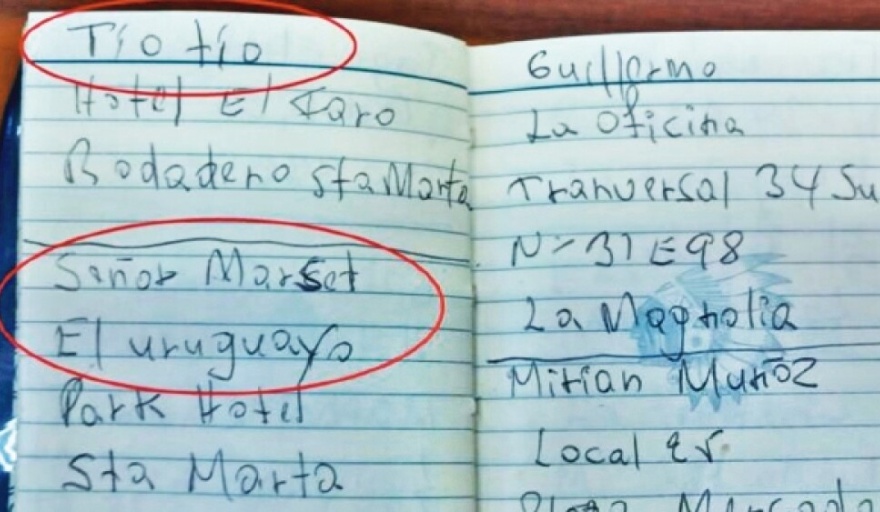 Tío tío
Hotel El Faro
Rodadero Sta Marta
Señor Marset
El uruguayo
Park Hotel
Sta Marta
Guillermo
La Oficina
Tranversal 34 Su
N= 31 E 98
La Magnolia
Mirian Muñoz
Local
Mercado